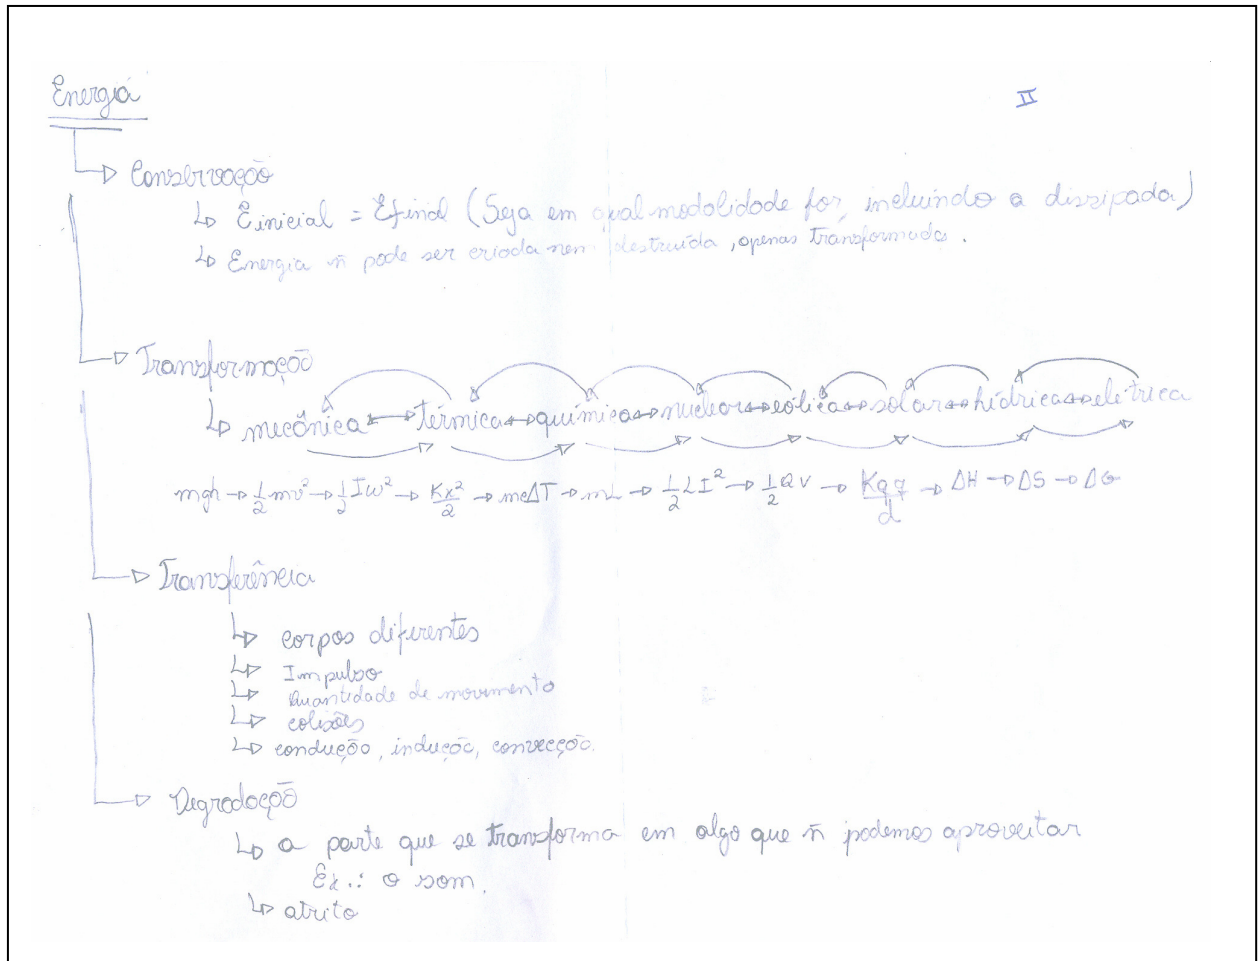 Energia
II
Conservação
Einicial = Efinal (Seja em qual modalidade for, incluindo a dissipada)
Energia ñ pode ser criada nem destruída, apenas transformada.
Transformação
mecânica ↔ térmica ↔ química ↔ nuclear ↔ eólica ↔ solar ↔ hídrica ↔ elétrica
mgh → 1/2 mv² → 1/2 Iw² → Kx²/2 → mcΔT → mL → 1/2 LI² → 1/2 QV → Kqq/d → ΔH → ΔS → ΔG
Transferência
corpos diferentes
Impulso
Quantidade de movimento
colisões
condução, indução, convecção.
Degradação
a parte que se transforma em algo que ñ podemos aproveitar
Ex.: o som.
atrito